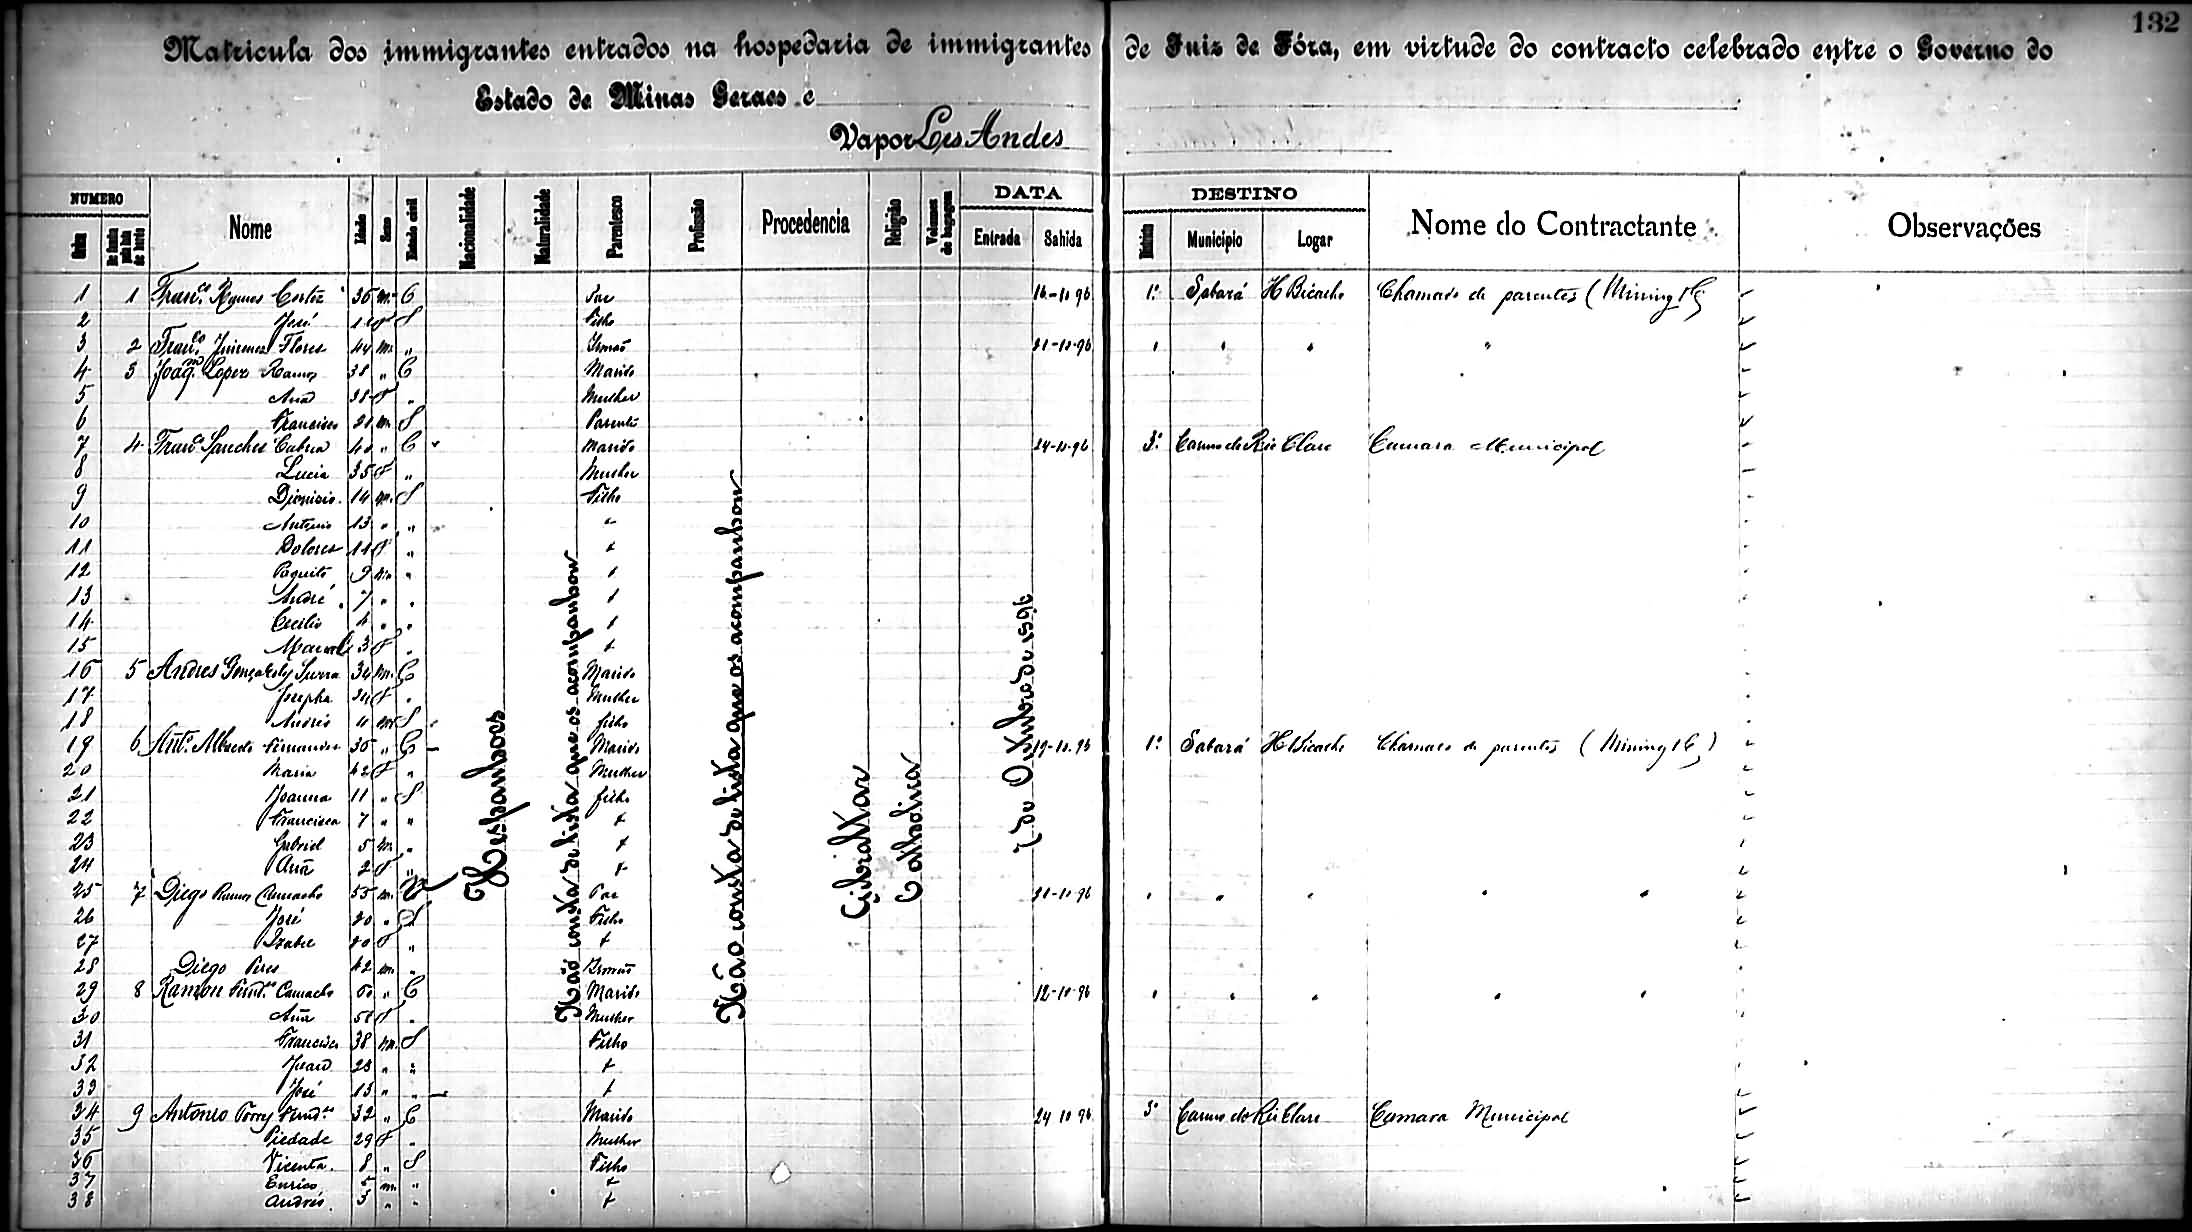 132
Matricula dos immigrantes entrados na hospedaria de immigrantes de Juiz de Fóra, em virtude do contracto celebrado entre o Governo do
Estado de Minas Geraes e
Vapor Les Andes
NUMERO Nome Idade Sexo Estado civil Nacionalidade Naturalidade Parentesco Profissão Procedencia Religião Volumes de bagagem DATA DESTINO Nome do Contractante Observações
Ordem Entrada Sahida Districto Municipio Logar
1 1 Franco. Ramos Cortez 36 m. C Pae 16-10-96 1º Sabará H Bicacho Chamado de parentes (Mining &C
2 José S Filho
3 2 Franco. Flores 44 m. " Irmão 21-10-96 " " " "
4 3 Joaqm. Lopez Ramos 38 " C Marido
5 Ana 38 F " Mulher
6 Francisco 21 m. S Parente
7 4 Franco. Sanches Cabrera 40 " C Marido 24-10-96 3º Carmo do Rio Claro Camara Municipal
8 Lucia 35 F " Mulher
9 Dionizio 14 m. S Filho
10 Antonio 13 " " "
11 Dolores 11 F " "
12 Paquito 9 m " "
13 André 7 " " "
14 Cecilio 4 " " "
15 3 F " "
16 5 Andres Gonçales 34 m. C Marido
17 Josepha 34 F " Mulher
18 Andrés m S filho
19 6 Anto. Fernandes 35 " C Marido 19-10-96 1º Sabará H Bicacho Chamado de parentes (Mining &C)
20 Maria 42 F " Mulher
21 Joanna 11 " S filho
22 Francisca 7 " " "
23 Gabriel 5 m. " "
24 Ana 2 F " "
25 7 Diego Ramos Camacho 55 m. V Pae 21-10-96 " " " " "
26 José 20 " S Filho
27 Izabel 20 F " "
28 Diego Peres 42 m. " Irmão
29 8 Ramon Fernds. Camacho 60 " C Marido 12-10-96 " " " " "
30 Ana F " Mulher
31 Francisco 38 m. S Filho
32 Juan 23 " " "
33 José 13 " " "
34 9 Antonio Torres Fernds. 32 " C Marido 24 10 96 3º Carmo do Rio Claro Camara Municipal
35 Piedade 29 F " Mulher
36 Vicenta 8 " S Filho
37 Enrico m. " "
38 Andrés 3 " " "
Hespanhoes
Não consta da lista que os acompanhou
Não consta da lista que os acompanhou
Gibraltar
Catholica
7 de Outubro de 1896